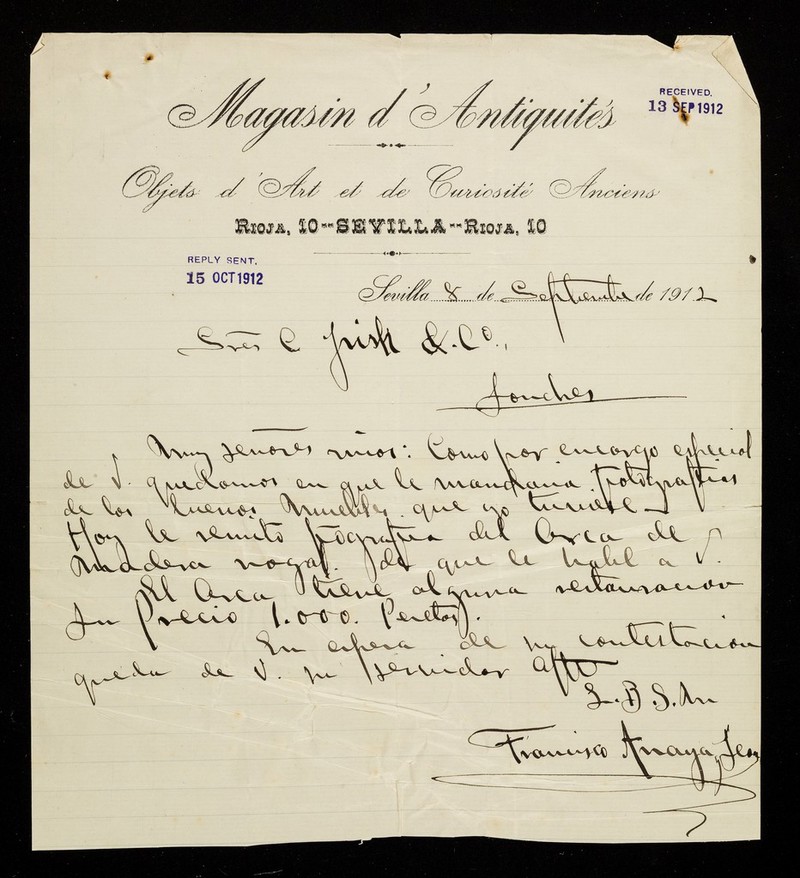 Magasin d'Antiquités
RECEIVED.
13 SEP 1912
Objets d'Art et de Curiosité Anciens
RIOJA, 10--SEVILLA--RIOJA, 10
REPLY SENT.
15 OCT 1912
Sevilla 8 de Septiembre de 1912
Sres C & Co.,
Londres
Muy señores mios: Como por encargo especial
de V. quedamos en que le mandaria fotografias
de los buenos Muebles que yo tuviese
Hoy le remito fotografia del Arca de
Madera nogal. de que le hablé a V.
El Arca tiene alguna restauracion
Su precio 1.000. Pesetas.
En espera de su contestacion
queda de V. su servidor afto
S.B.S.M
Francisco Anaya